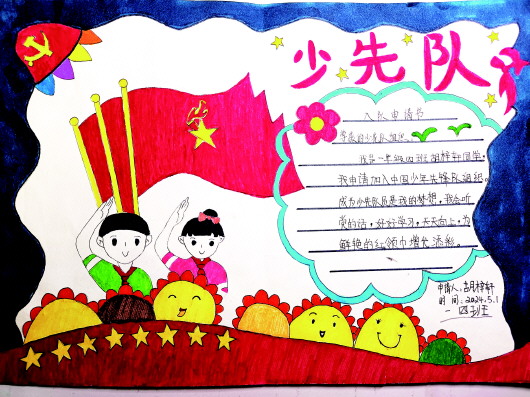 少先队
入队申请书
尊敬的少先队组织：
我是一年级四班胡梓轩同学。
我申请加入中国少年先锋队组织。
成为少先队员是我的梦想，我会听
党的话，好好学习，天天向上，为
鲜艳的红领巾增光添彩。
申请人：胡梓轩
时间：2024.5.1
一四班